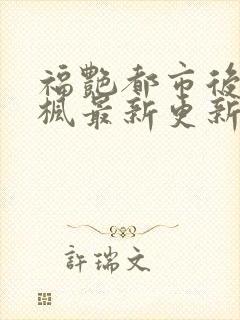 福艷都市後
楓最新更新
許瑞文